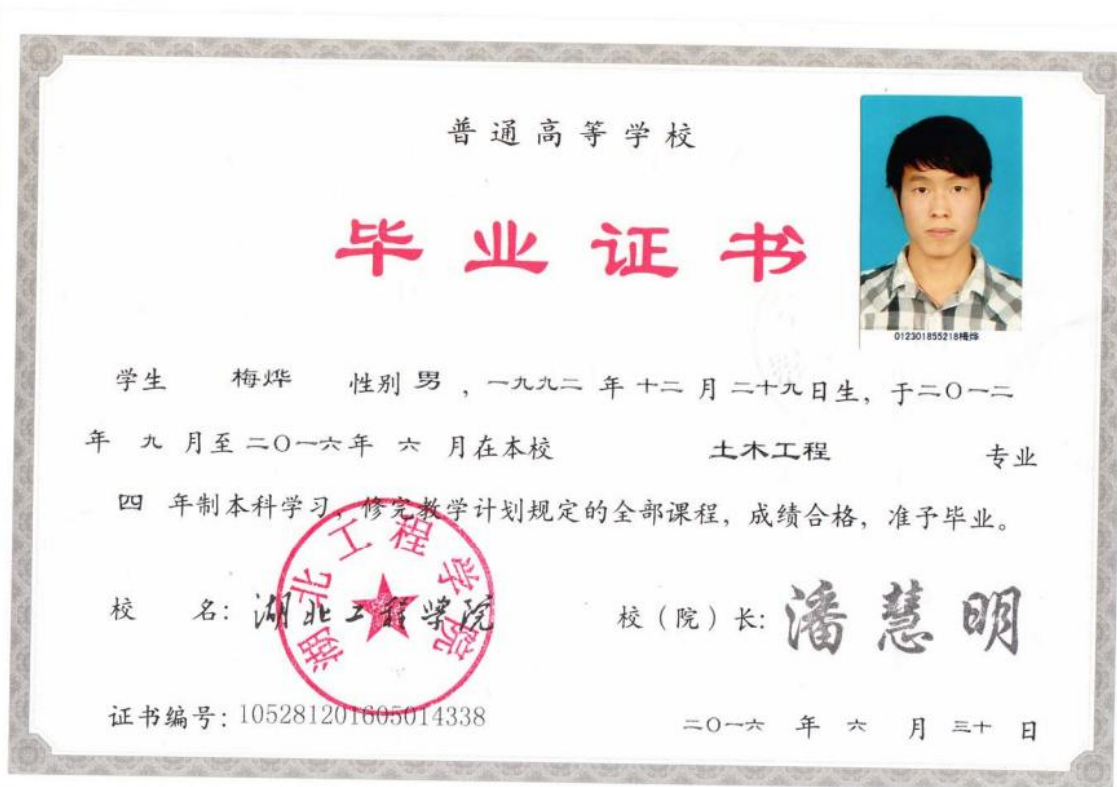 普通高等学校
毕业证书
012301855218梅烨
学生 梅烨 性别 男 ，一九九二 年 十二 月 二十九日生，于二〇一二
年 九 月至 二〇一六年 六 月在本校 土木工程 专业
四 年制本科学习，修完教学计划规定的全部课程，成绩合格，准予毕业。
湖北工程学院
校 名：湖北工程学院 校（院）长：潘慧明
证书编号：105281201605014338 二〇一六 年 六 月 三十 日